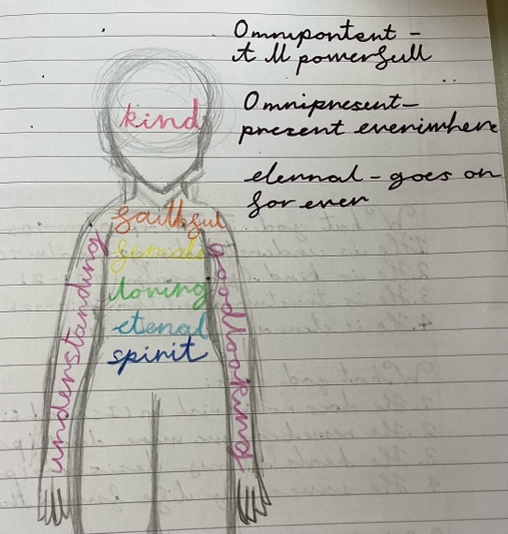 Omnipontent -
All powerfull
Omnipresent-
present everimhere
eternal - goes on
for ever
kind
faithful
female
loving
etenal
spirit
understanding
goodlooking